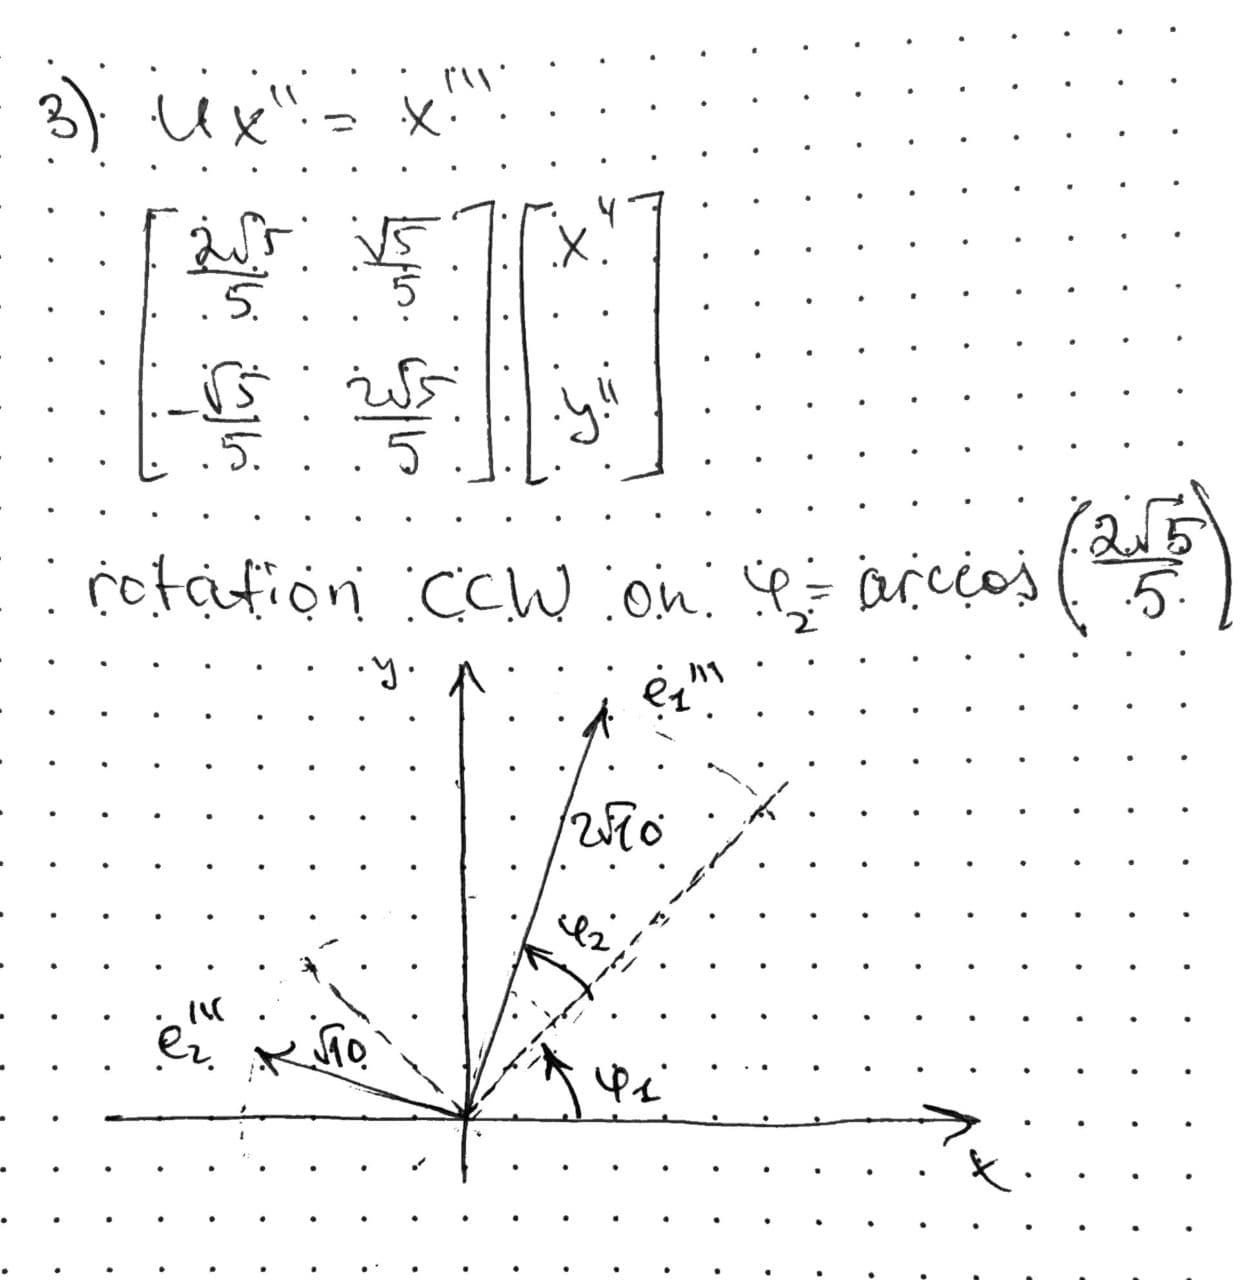 3) Ux'' = x'''
[ 2√5/5 √5/5 ] [ x'' ]
[ -√5/5 2√5/5 ] [ y'' ]
rotation CCW on φ₂ = arccos(2√5/5)
y
e₁'''
2√10
φ₂
e₂'''
√10
φ₁
x